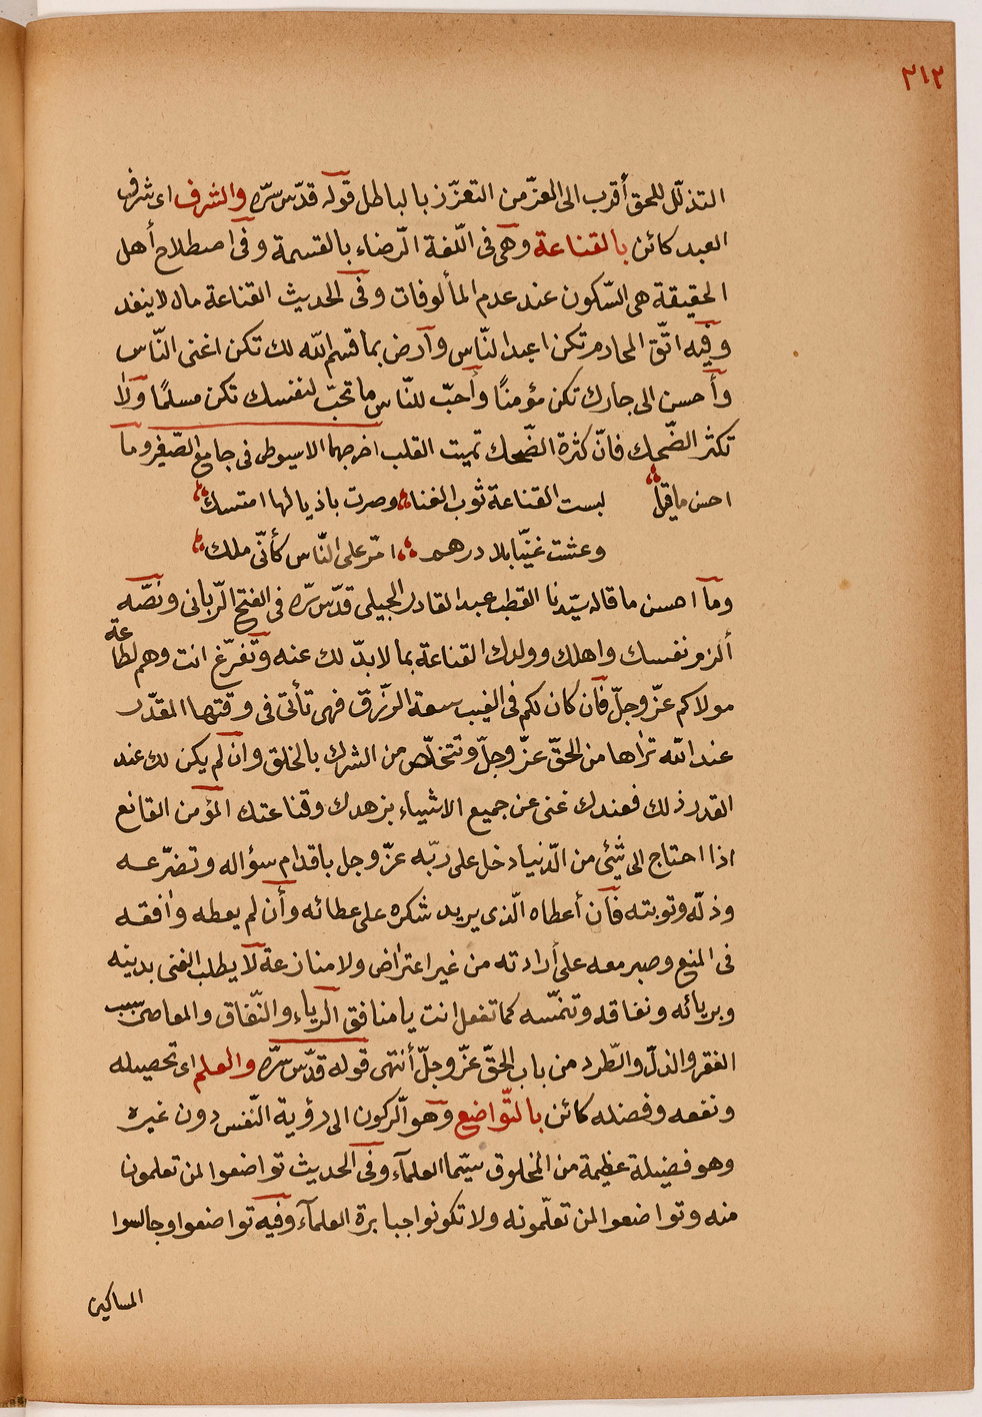 ٣١٢
التذلّل للحق أقرب الى العزّ من التعزّز بالباطل قوله قدّس سرّه والشرف اى شرف
العبد كائن بالقناعة وهى فى اللّغة الرّضاء بالقسمة وفى اصطلاح أهل
الحقيقة هى السّكون عند عدم المألوفات وفى الحديث القناعة مال لا ينفد
وفيه اتّق المحارم تكن اعبد النّاس وارض بما قسم الله لك تكن اغنى النّاس
وأحسن الى جارك تكن مؤمنًا وأحبّ للنّاس ما تحبّ لنفسك تكن مسلمًا ولا
تكثر الضّحك فانّ كثرة الضّحك تميت القلب اخرجهما الاسيوطى فى جامع الصّغير وما
احسن ما قيل لبست القناعة ثوب الغنا وصرت باذيالها امتسك
وعشت غنيّا بلا درهم امرّ على النّاس كأنّى ملك
وما احسن ما قاله سيّدنا القطب عبد القادر الجيلى قدّس سرّه فى الفتح الرّبانى ونصّه
ألزم نفسك واهلك وولدك القناعة بما لا بدّ لك عنه وتفرّغ انت وهم لطاعة
مولاكم عزّ وجلّ فان كان لكم فى الغيب سعة الرّزق فهى تأتى فى وقتها المقدّر
عند الله تراها من الحقّ عزّ وجلّ وتتخلّص من الشرك بالخلق وان لم يكن لك عند
القدر ذلك فعندك غنى عن جميع الاشياء بزهدك وقناعتك المؤمن القانع
اذا احتاج الى شئ من الدّنيا دخل على ربّه عزّ وجل باقدام سؤاله وتضرّعه
وذلّه وتوبته فان أعطاه الّذى يريد شكره على عطائه وأن لم يعطه وافقه
فى المنع وصبر معه على أرادته من غير اعتراض ولا منازعة لا يطلب الغنى بدينه
وبريائه ونفاقه وتنمّسه كما تفعل انت يا منافق الرياء والنّفاق والمعاصى سبب
الفقر والذلّ والطّرد من باب الحقّ عزّ وجلّ أنتهى قوله قدّس سرّه والعلم اى تحصيله
ونفعه وفضله كائن بالتّواضع وهو الرّكون الى رؤية النّفس دون غيره
وهو فضيلة عظيمة من المخلوق سيّما العلمآء وفى الحديث تواضعوا لمن تعلمون
منه وتواضعوا لمن تعلّمونه ولا تكونوا جبابرة العلمآء وفيه تواضعوا وجالسوا
المساكين